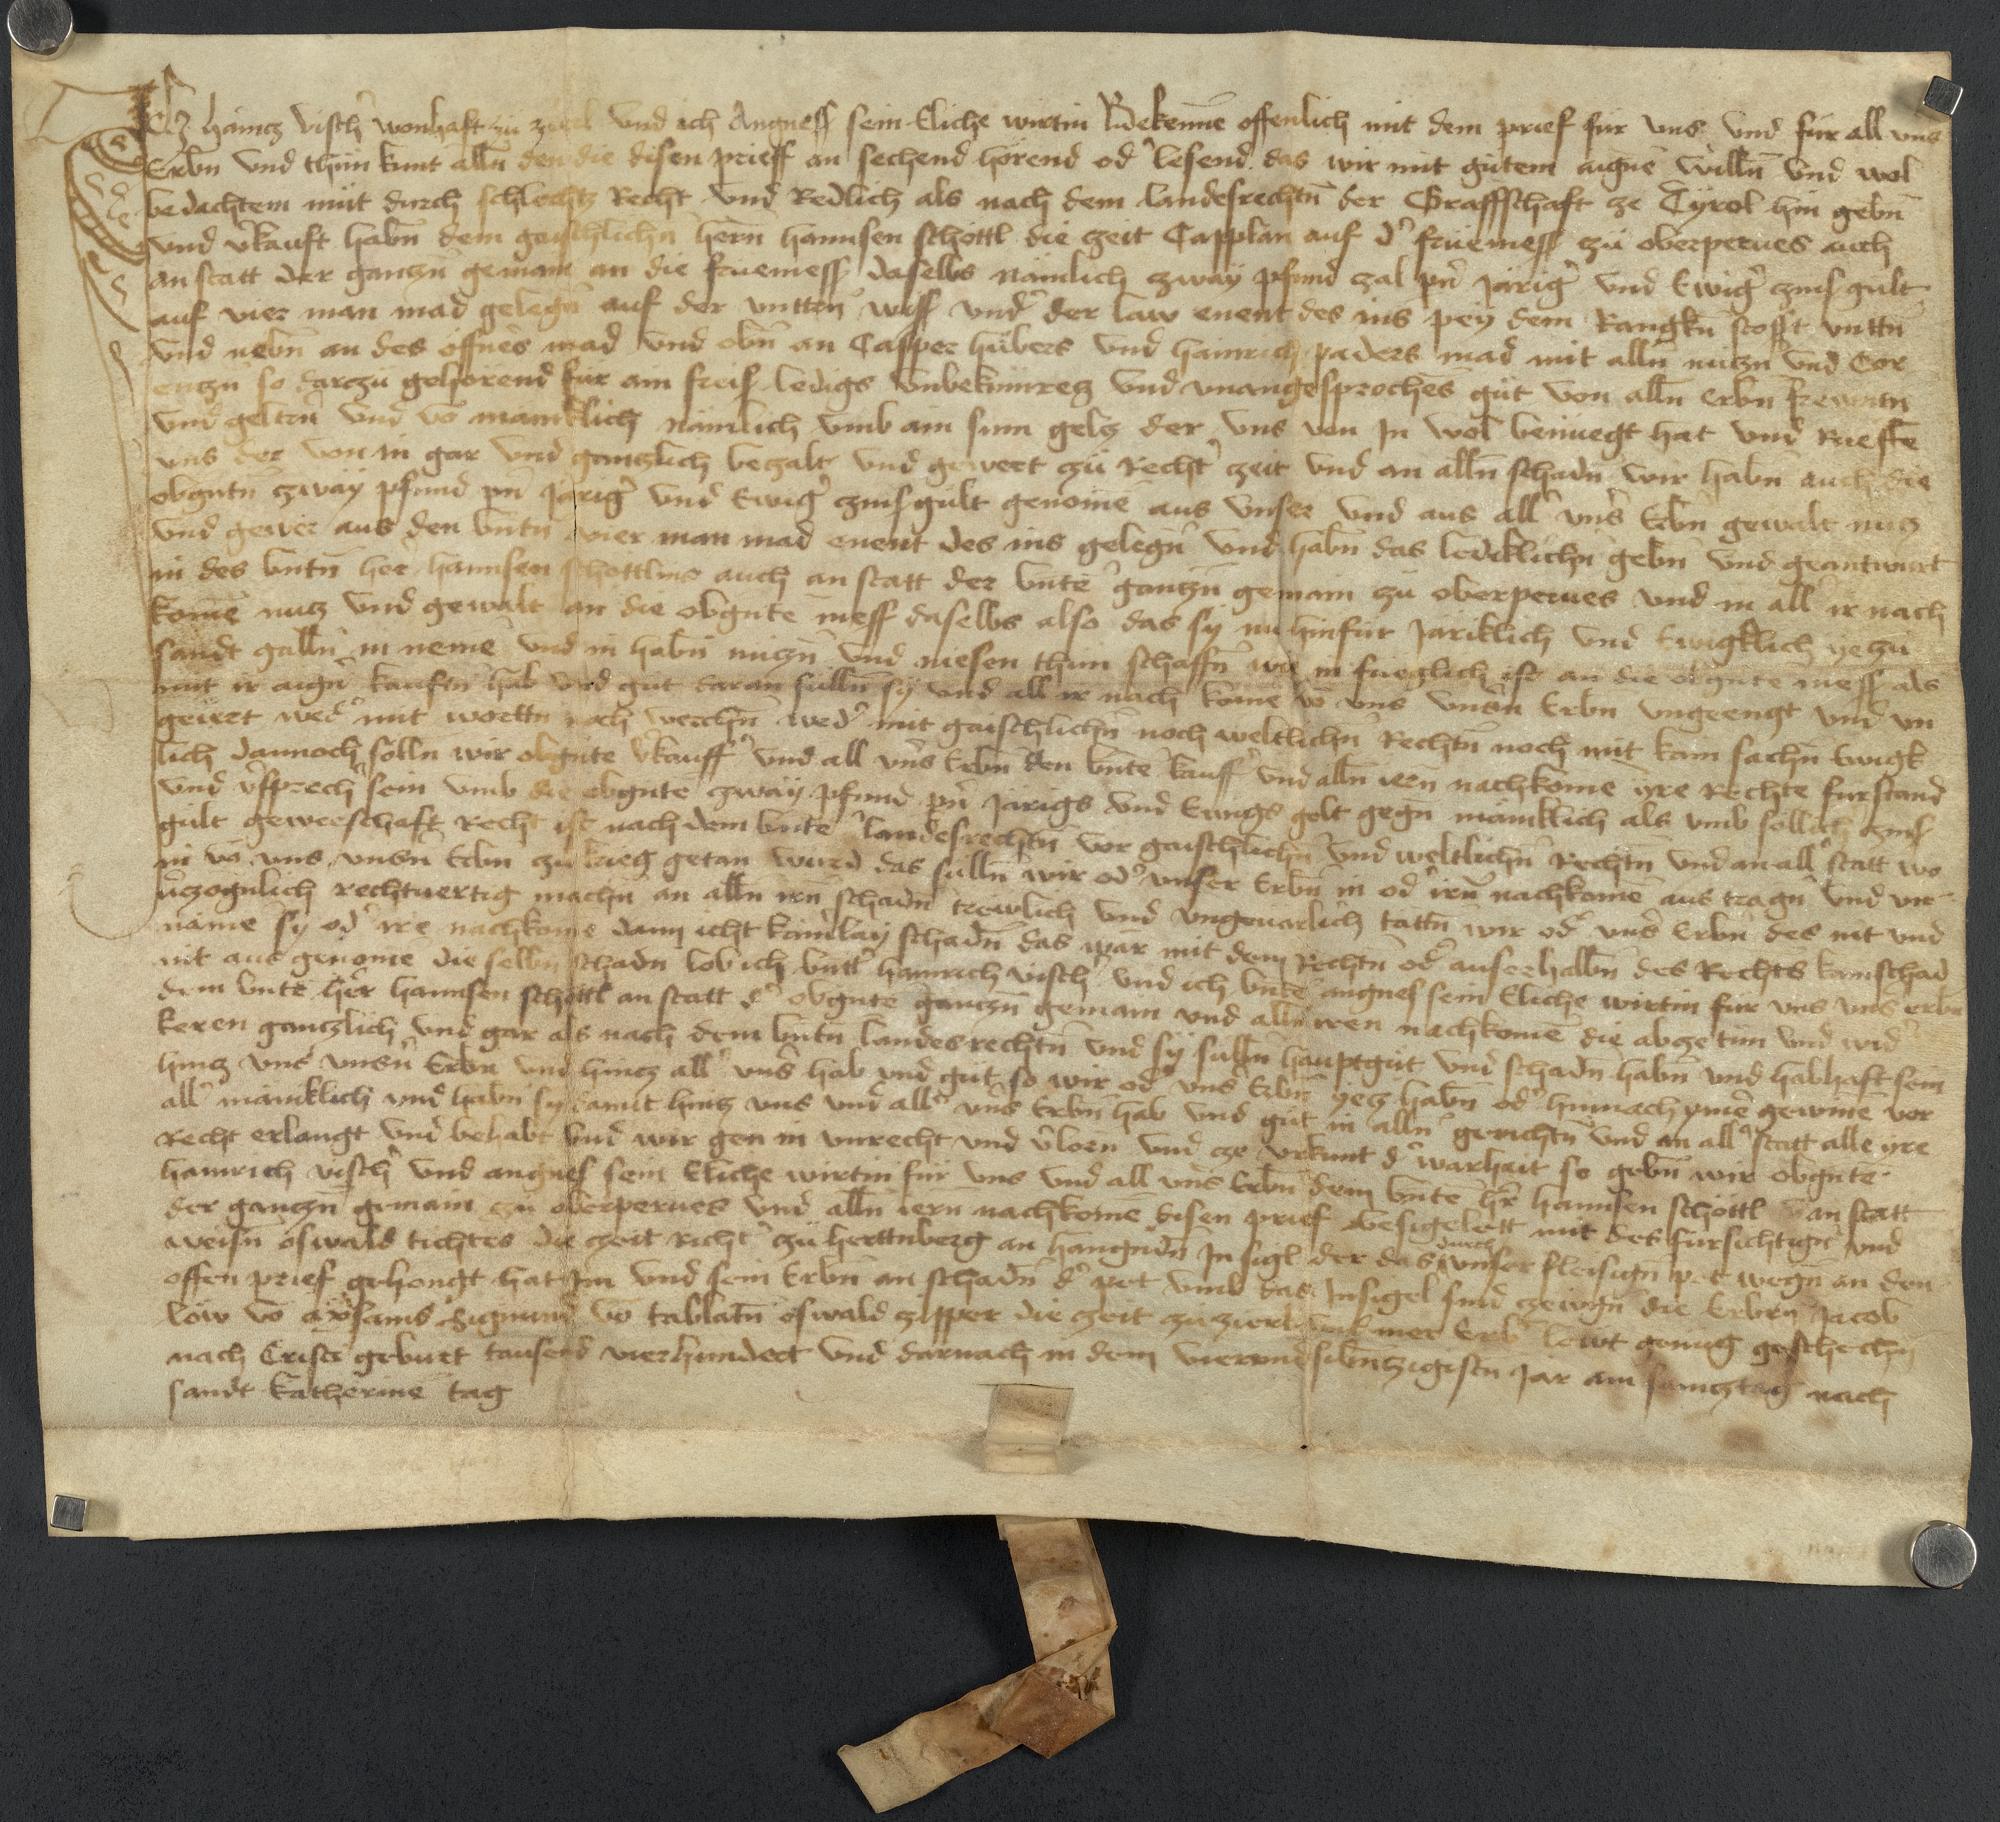 Ich haintz visch' wonhaft zu zierl und ich Angness sein Eliche wirtin Bekenne offenlich mit dem prief für uns und für all uns
Erbn und thun kunt alln den die disen prieff an sechend hörend od' lesend das wir mit gutem aigne willn und wol
bedachtem mut durch schlechtz Recht und Redlich als nach dem landesrechtn der Graffschaft ze Tyrol hin gebn
und v'kauft habn dem gaischlichn hern hannsen schöttl die zeit Capplan auf d' fruemess zu oberperves auch
an statt der gantzn gemain an die fruemess daselbs nämlich zway pfund zal pn' järig' und Ewig' zinsgült
auf vier man mad gelegn auf der untten wiss und' der law enent des ins pey dem Rangkn stosst unttn
und nebn an des öffners mad und obn an Casper hubers und hainrich paders mad mit alln nutzn und Eer
entzn so darzu gehörend für ain freis ledigs unbekümretz und unangesprochens gut von alln erbn
und geltn und vo mänklich nämlich umb ain sum geltz der uns von In wol benuegt hat und
uns der von in gar und gantzlich bezalt und gewert zu Recht' zeit und an alln schadn wir habn auch die
obgntn zway pfund pn' järig' und Ewig' zinsgült genome aus unser und aus all' uns' Erbn gewalt nutz
und gewer aus den bntn vier man mad enent des ins gelegn und habn das lediklichn gebn und geantwurt
in des bntn her hannsen schöttlins auch an statt der bnte gantzn gemain zu oberperves und in all' ir nach
kome nutz und gewalt an die obgnte mess daselbs also das sy nu hinfür Järiklich und Ewigklich ye zu
sandt galln in neme und in habn nutzn und niesen thun schaffn wie in fueglich ist an die obgnte mess als
mit ir aign kauftn hab und gut daran sulln sy und all ir nach kome vo uns unsn Erbn ungeengt und un
geirret wed' mit wortn noch wercchn wed' mit gaischlichn noch weltlichn Rechtn noch mit kain sachn Ewigk
lich dannoch solln wir obgnte v'kauff' und all uns' Erbn den bnte kauff' und alln iern nachkome yre Rechte furstand
und v'sprech' sein umb die obgnte zway pfund pn' järigs und Ewigs gelt gegn mänklich als umb sölich zins
gült gewerschaft Recht ist nach dem bnte landesrechtn vor gaischlichn und weltlichn Rechtn und an all' statt wo
in vo uns unsn Erbn zu krieg getan wurd das sulln wir od' unser Erbn in od' irn nachkomen aus tragn und un
v'zogenlich rechtvertig machn an alln irn schadn trewlich und ungevarlich tättn wir od' uns' Erbn des nit und
näme sy od' ire nachkome dann icht kainlay schadn das wär mit dem Rechtn od' auserhalbn des Rechts kain schad
nit aus genome die selbn schadn lob ich bntt' hainrich visch' und ich bnte angnes sein Eliche wirtin für uns uns erbn
dem bnte her hannsen schöttl an statt d' obgnte gantzn gemain und alln iren nachkomen die abze tun und wid'
keren gantzlich und gar als nach dem bntn landesrechtn und sy sulln hauptgut und schadn habn und habhaft sein
hintz uns unsn Erbn und hintz all' uns' hab und gut so wir od' uns' Erbn yetz habn od' hinnach yme' gewine vor
all' mänklich und habn sy damit hintz uns und all' uns' Erbn hab und gut in alln gerichtn und an all' statt alle yre
Recht erlangt und behabt und wir gen in unrecht und v'lorn und ze urkunt d' warhait so gebn wir obgnte
hainrich visch' und angnes sein Eliche wirtin für uns und all uns' Erbn dem bnte her hannsen schöttl an statt
der gantzn gemain zu oberperves und alln iern nachkome disen prief besigelett mit des fürsichtign und
weisn oswald tichtes die zeit Richt' zu herttnberg an hangndn Insigl der das durch unser fleisign pet wegn an den
offen prief gehengt hat Im und sein Erbn an schadn d' pet umb das Insigel sind zewgn die Erbrn Jacob
löw vo axsams Sigmund vo tablatn oswald zipper die zeit zu zierl und mer Erb' lewt genug geschechn
nach Cristi geburt tausend vierhundert und darnach in dem vierundsibntzigistn Jar am samtztag nach
sandt katherine tag